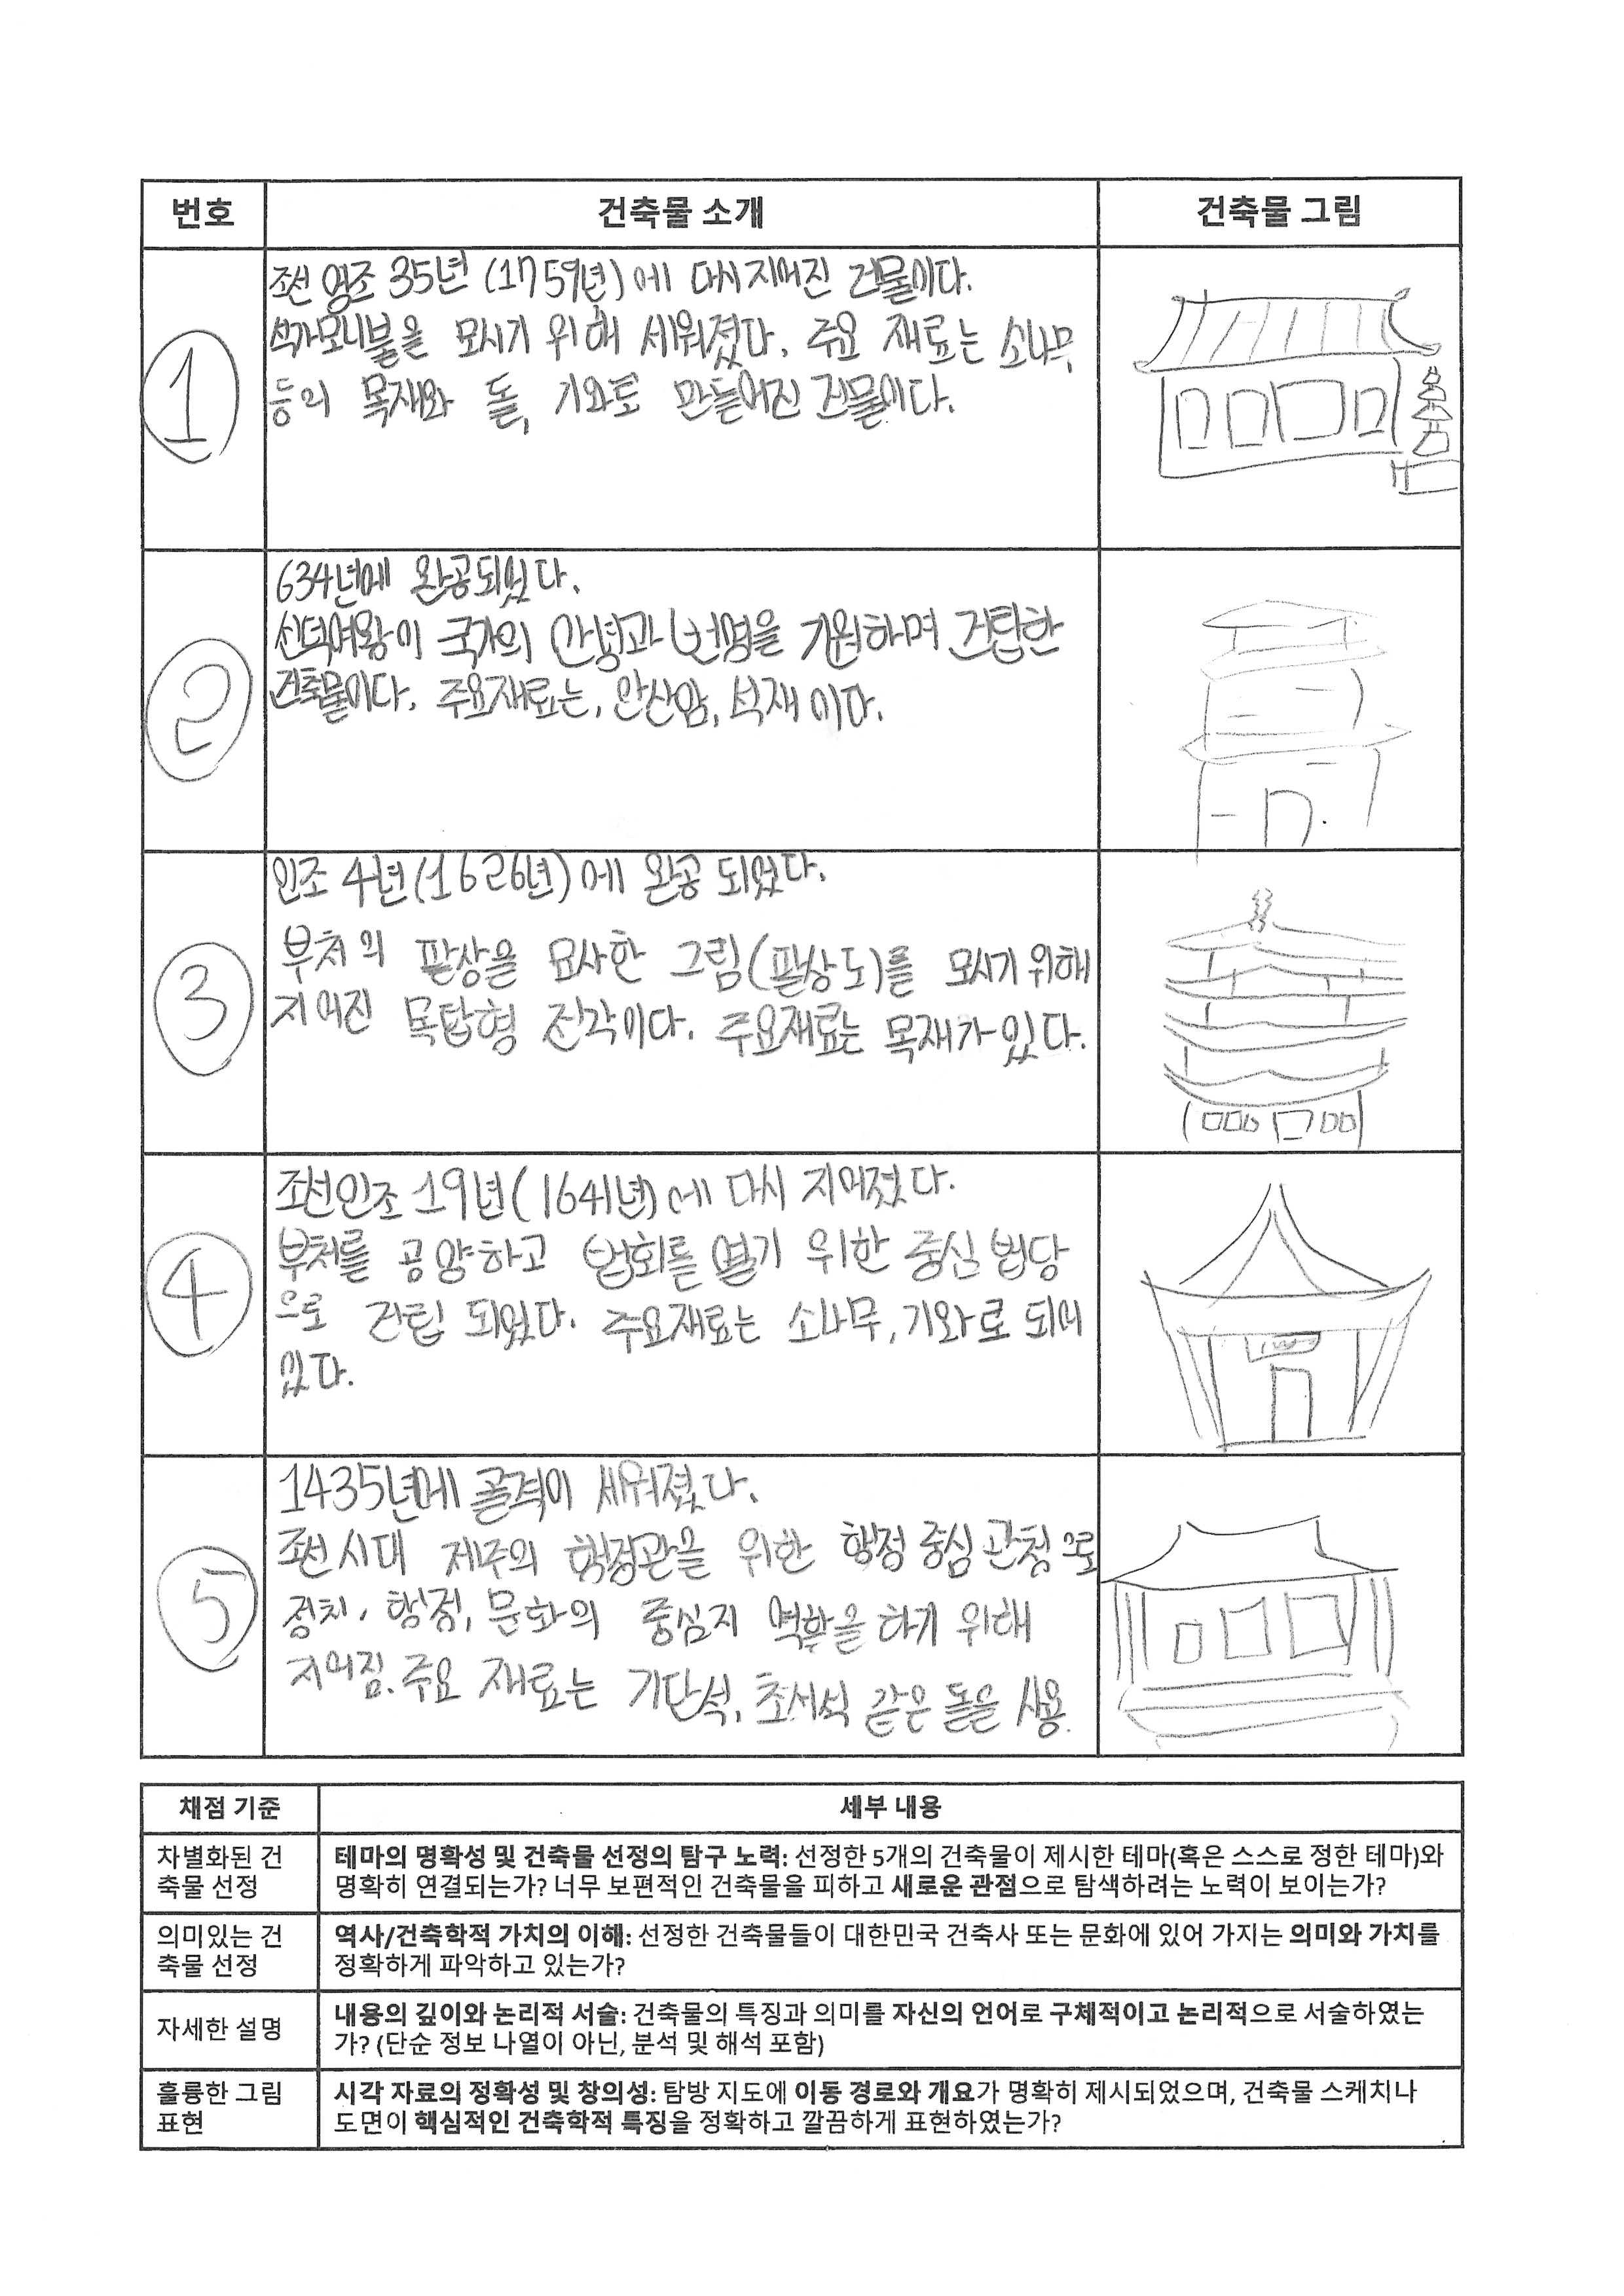 번호
건축물 소개
건축물 그림
1
조선 영조 35년 (1759년)에 다시 지어진 건물이다.
석가모니불을 모시기 위해 세워졌다. 주요 재료는 소나무
등의 목재와 돌, 기와로 만들어진 건물이다.
2
634년에 완공되었다.
선덕여왕이 국가의 안녕과 번영을 기원하며 건탑한
건축물이다. 주요재료는, 안산암, 석재 이다.
3
인조 4년(1626년)에 완공 되었다.
부처의 팔상을 묘사한 그림(팔상도)를 모시기 위해
지어진 목탑형 전각이다. 주요재료는 목재가 있다.
4
조선인조 19년(1641년)에 다시 지어졌다.
부처를 공양하고 법회를 열기 위한 중심 법당
으로 건립 되었다. 주요재료는 소나무, 기와로 되어
있다.
5
1435년에 골격이 세워졌다.
조선시대 제주의 행정관을 위한 행정 중심 관청으로
정치, 행정, 문화의 중심지 역할을 하기 위해
지어짐. 주요 재료는 기단석, 초석 같은 돌을 사용.
채점 기준
세부 내용
차별화된 건
축물 선정
테마의 명확성 및 건축물 선정의 탐구 노력: 선정한 5개의 건축물이 제시한 테마(혹은 스스로 정한 테마)와
명확히 연결되는가? 너무 보편적인 건축물을 피하고 새로운 관점으로 탐색하려는 노력이 보이는가?
의미있는 건
축물 선정
역사/건축학적 가치의 이해: 선정한 건축물들이 대한민국 건축사 또는 문화에 있어 가지는 의미와 가치를
정확하게 파악하고 있는가?
자세한 설명
내용의 깊이와 논리적 서술: 건축물의 특징과 의미를 자신의 언어로 구체적이고 논리적으로 서술하였는
가? (단순 정보 나열이 아닌, 분석 및 해석 포함)
훌륭한 그림
표현
시각 자료의 정확성 및 창의성: 탐방 지도에 이동 경로와 개요가 명확히 제시되었으며, 건축물 스케치나
도면이 핵심적인 건축학적 특징을 정확하고 깔끔하게 표현하였는가?